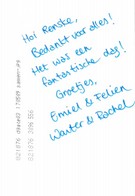 Hoi Renske,
Bedankt voor alles!
Het was een
fantastische dag!
Groetjes,
Emiel & Felien
Wouter & Rachel